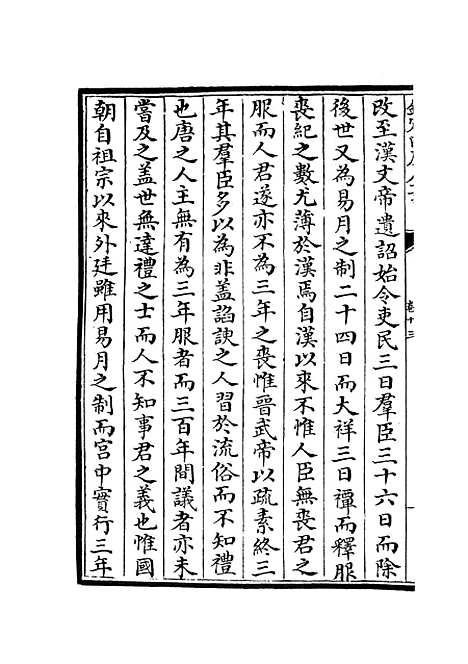 欽定四庫全書
卷十三
改至漢文帝遺詔始令吏民三日羣臣三十六日而除
後世又為易月之制二十四日而大祥三日禫而釋服
喪紀之數尤薄於漢焉自漢以來不惟人臣無喪君之
服而人君遂亦不為三年之喪惟晉武帝以疏素終三
年其羣臣多以為非盖諂諛之人習於流俗而不知禮
也唐之人主無有為三年服者而三百年間議者亦未
嘗及之盖世無達禮之士而人不知事君之義也惟國
朝自祖宗以來外廷雖用易月之制而宫中實行三年